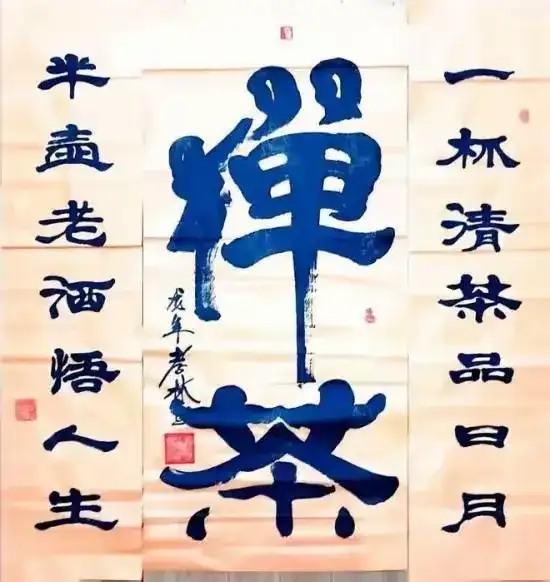 一杯清茶品日月
禪茶
龙年
半壶老酒悟人生